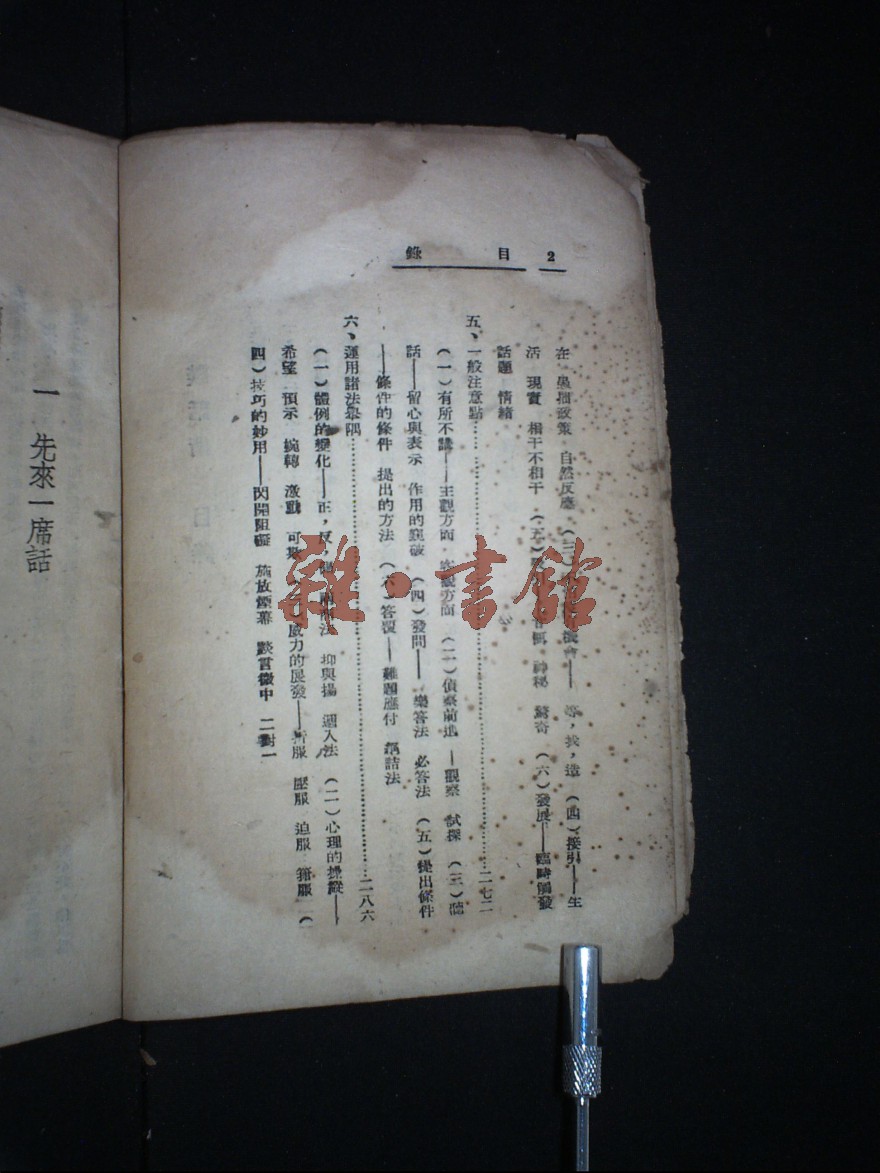 目錄 2
在 自然反應 (三) 機會——等，找，造 (四)接引——生
活 現實 相干不相干 (五) 神秘 驚奇 (六)發展——臨時觸發
話題 情緒
五、一般注意點……二七二
(一)有所不講——主觀方面 客觀方面 (二)偵察前進——觀察 試探 (三)聽
話——留心與表示 作用的窺破 (四)發問——樂答法 必答法 (五)提出條件
——條件的條件 提出的方法 (六)答覆——難題應付 詰法
六、運用諸法舉隅……二八六
(一)體例的變化——正，反， 抑與揚 (二)心理的操縱——
希望 預示 婉轉 激動 威力的展發——折服 壓服 迫服 (
四)技巧的妙用——閃開阻礙 施放煙幕 談言微中 二對一
一 先來一席話
雜·書館